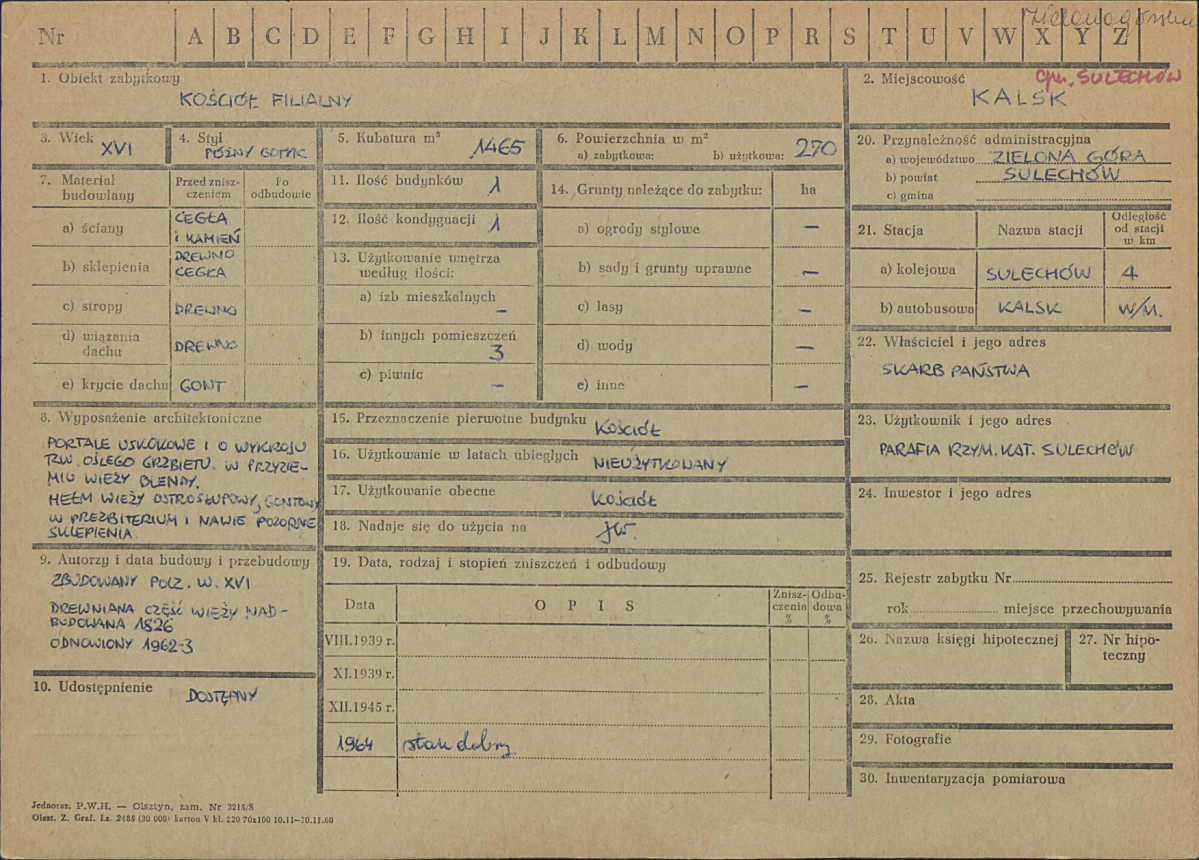 Zielonogórskie
Nr A B C D E F G H I J K L M N O P R S T U V W X Y Z
1. Obiekt zabytkowy
KOŚCIÓŁ FILIALNY
2. Miejscowość
gm. SULECHÓW
KALSK
3. Wiek
XVI
4. Styl
PÓŹNY GOTYK
5. Kubatura m³
1465
6. Powierzchnia w m²
a) zabytkowa: b) użytkowa: 270
7. Materiał budowlany
Przed zniszczeniem
Po odbudowie
a) ściany
CEGŁA
i KAMIEŃ
b) sklepienia
DREWNO
CEGŁA
c) stropy
DREWNO
d) wiązania dachu
DREWNO
e) krycie dachu
GONT
8. Wyposażenie architektoniczne
PORTALE USKOKOWE I O WYKROJU
TZW. OŚLEGO GRZBIETU. W PRZYZIE-
MIU WIEŻY BLENDY.
HEŁM WIEŻY OSTROSŁUPOWY, GONTOWY
W PREZBITERIUM I NAWIE POZORNE
SKLEPIENIA.
9. Autorzy i data budowy i przebudowy
ZBUDOWANY POCZ. W. XVI
DREWNIANA CZĘŚĆ WIEŻY NAD-
BUDOWANA 1826
ODNOWIONY 1962-3
10. Udostępnienie
DOSTĘPNY
11. Ilość budynków
1
12. Ilość kondygnacji
1
13. Użytkowanie wnętrza według ilości:
a) izb mieszkalnych
–
b) innych pomieszczeń
3
c) piwnic
–
14. Grunty należące do zabytku:
ha
a) ogrody stylowe –
b) sady i grunty uprawne –
c) lasy –
d) wody –
e) inne –
15. Przeznaczenie pierwotne budynku
KOŚCIÓŁ
16. Użytkowanie w latach ubiegłych
NIEUŻYTKOWANY
17. Użytkowanie obecne
KOŚCIÓŁ
18. Nadaje się do użycia na
JW.
19. Data, rodzaj i stopień zniszczeń i odbudowy
Data
O P I S
Zniszczenia %
Odbudowa %
VIII.1939 r.
XI.1939 r.
XII.1945 r.
1964 stan dobry
20. Przynależność administracyjna
a) województwo ZIELONA GÓRA
b) powiat SULECHÓW
c) gmina
21. Stacja
Nazwa stacji
Odległość od stacji w km
a) kolejowa SULECHÓW 4
b) autobusowa KALSK W/M.
22. Właściciel i jego adres
SKARB PAŃSTWA
23. Użytkownik i jego adres
PARAFIA RZYM. KAT. SULECHÓW
24. Inwestor i jego adres
25. Rejestr zabytku Nr
rok miejsce przechowywania
26. Nazwa księgi hipotecznej
27. Nr hipoteczny
28. Akta
29. Fotografie
30. Inwentaryzacja pomiarowa
Jednoraz. P.W.H. — Olsztyn, zam. Nr 3215/S
Olszt. Z. Graf. Lz. 2485 (30 000) karton V kl. 220 70x100 10.11—30.11.60